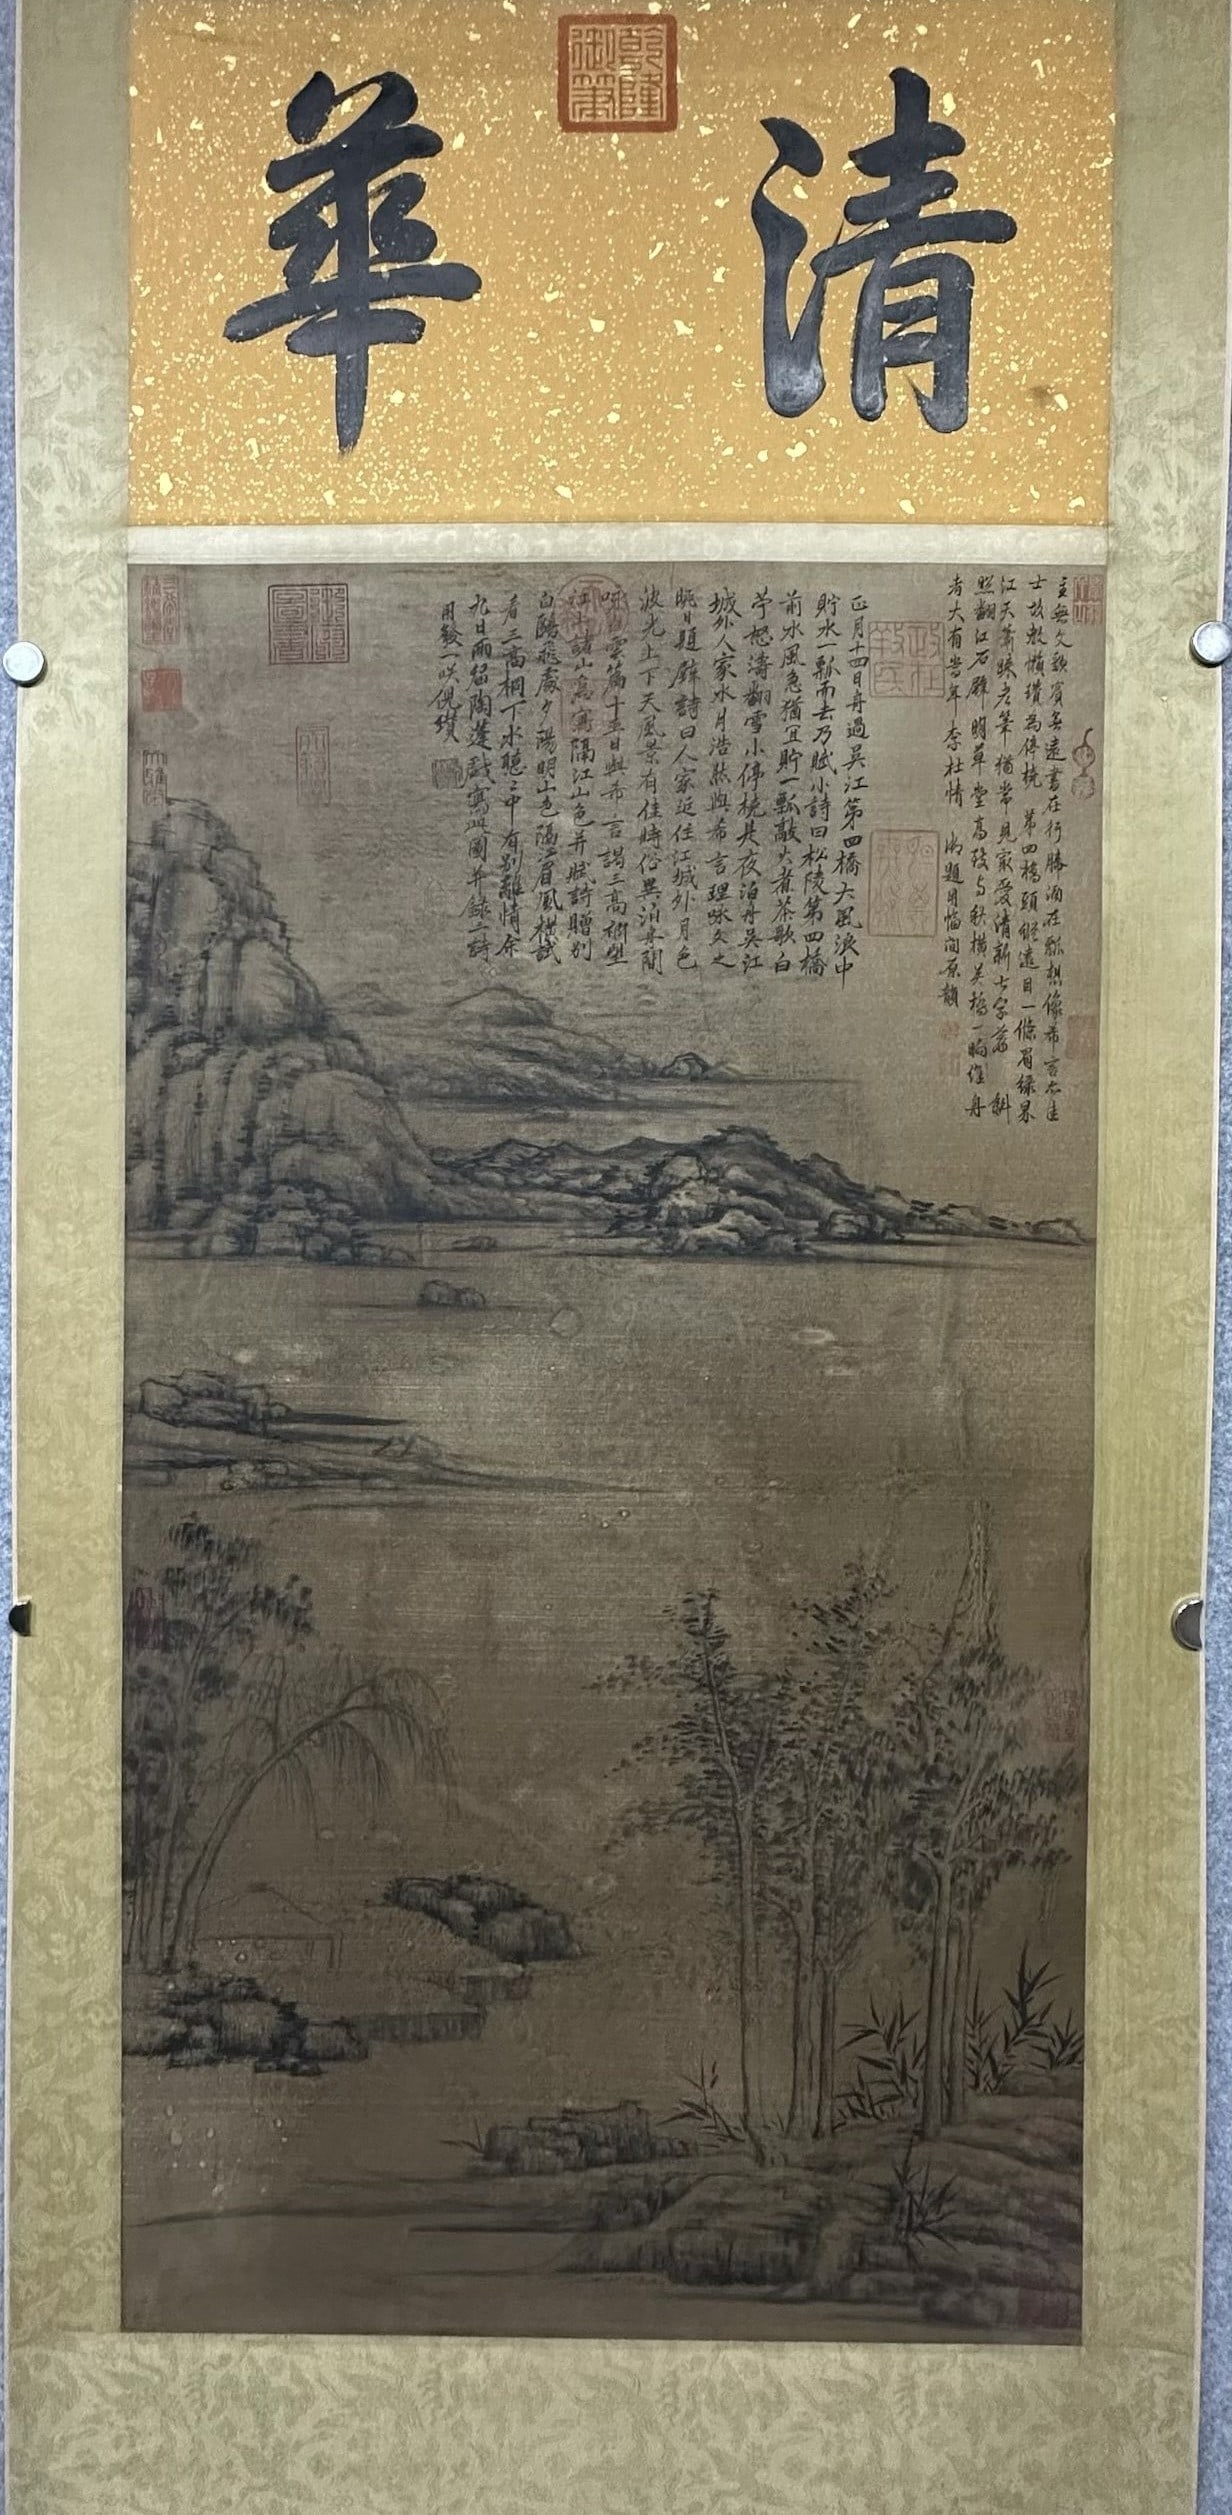 清華
乾隆御筆
主無久歌賓無遠書在行勝酒在瓢想像希言亦佳
士故教懶瓚為停橈 第四橋頭縱遠目一條眉綠界
江天蕭疎老筆猶常見家愛清新七字蕭 斜
照翻江石壁明草堂高致與秋橫吳橋一晌維舟
者大有當年李杜情 御題用幅間原韻
正月十四日舟過吳江第四橋大風浪中
貯水一瓢而去乃賦小詩曰松陵第四橋
前水風急猶宜貯一瓢敲火煮茶歌白
苧怒濤翻雪小停橈是夜泊舟吳江
城外人家水月浩然與希言理咏久之
眺日題壁詩曰人家近住江城外月色
波光上下天風景有佳時俗異泊舟閒
咏 雲篇十五日與希言謁三高祠望
江上諸山為寫隔江山色并賦詩贈別
白鷗飛處夕陽明山色隔江眉黛橫試
看三高祠下水聽之中有別離情余
九日雨留陶蓬戲寫此圖并錄二詩
用發一咲倪瓚